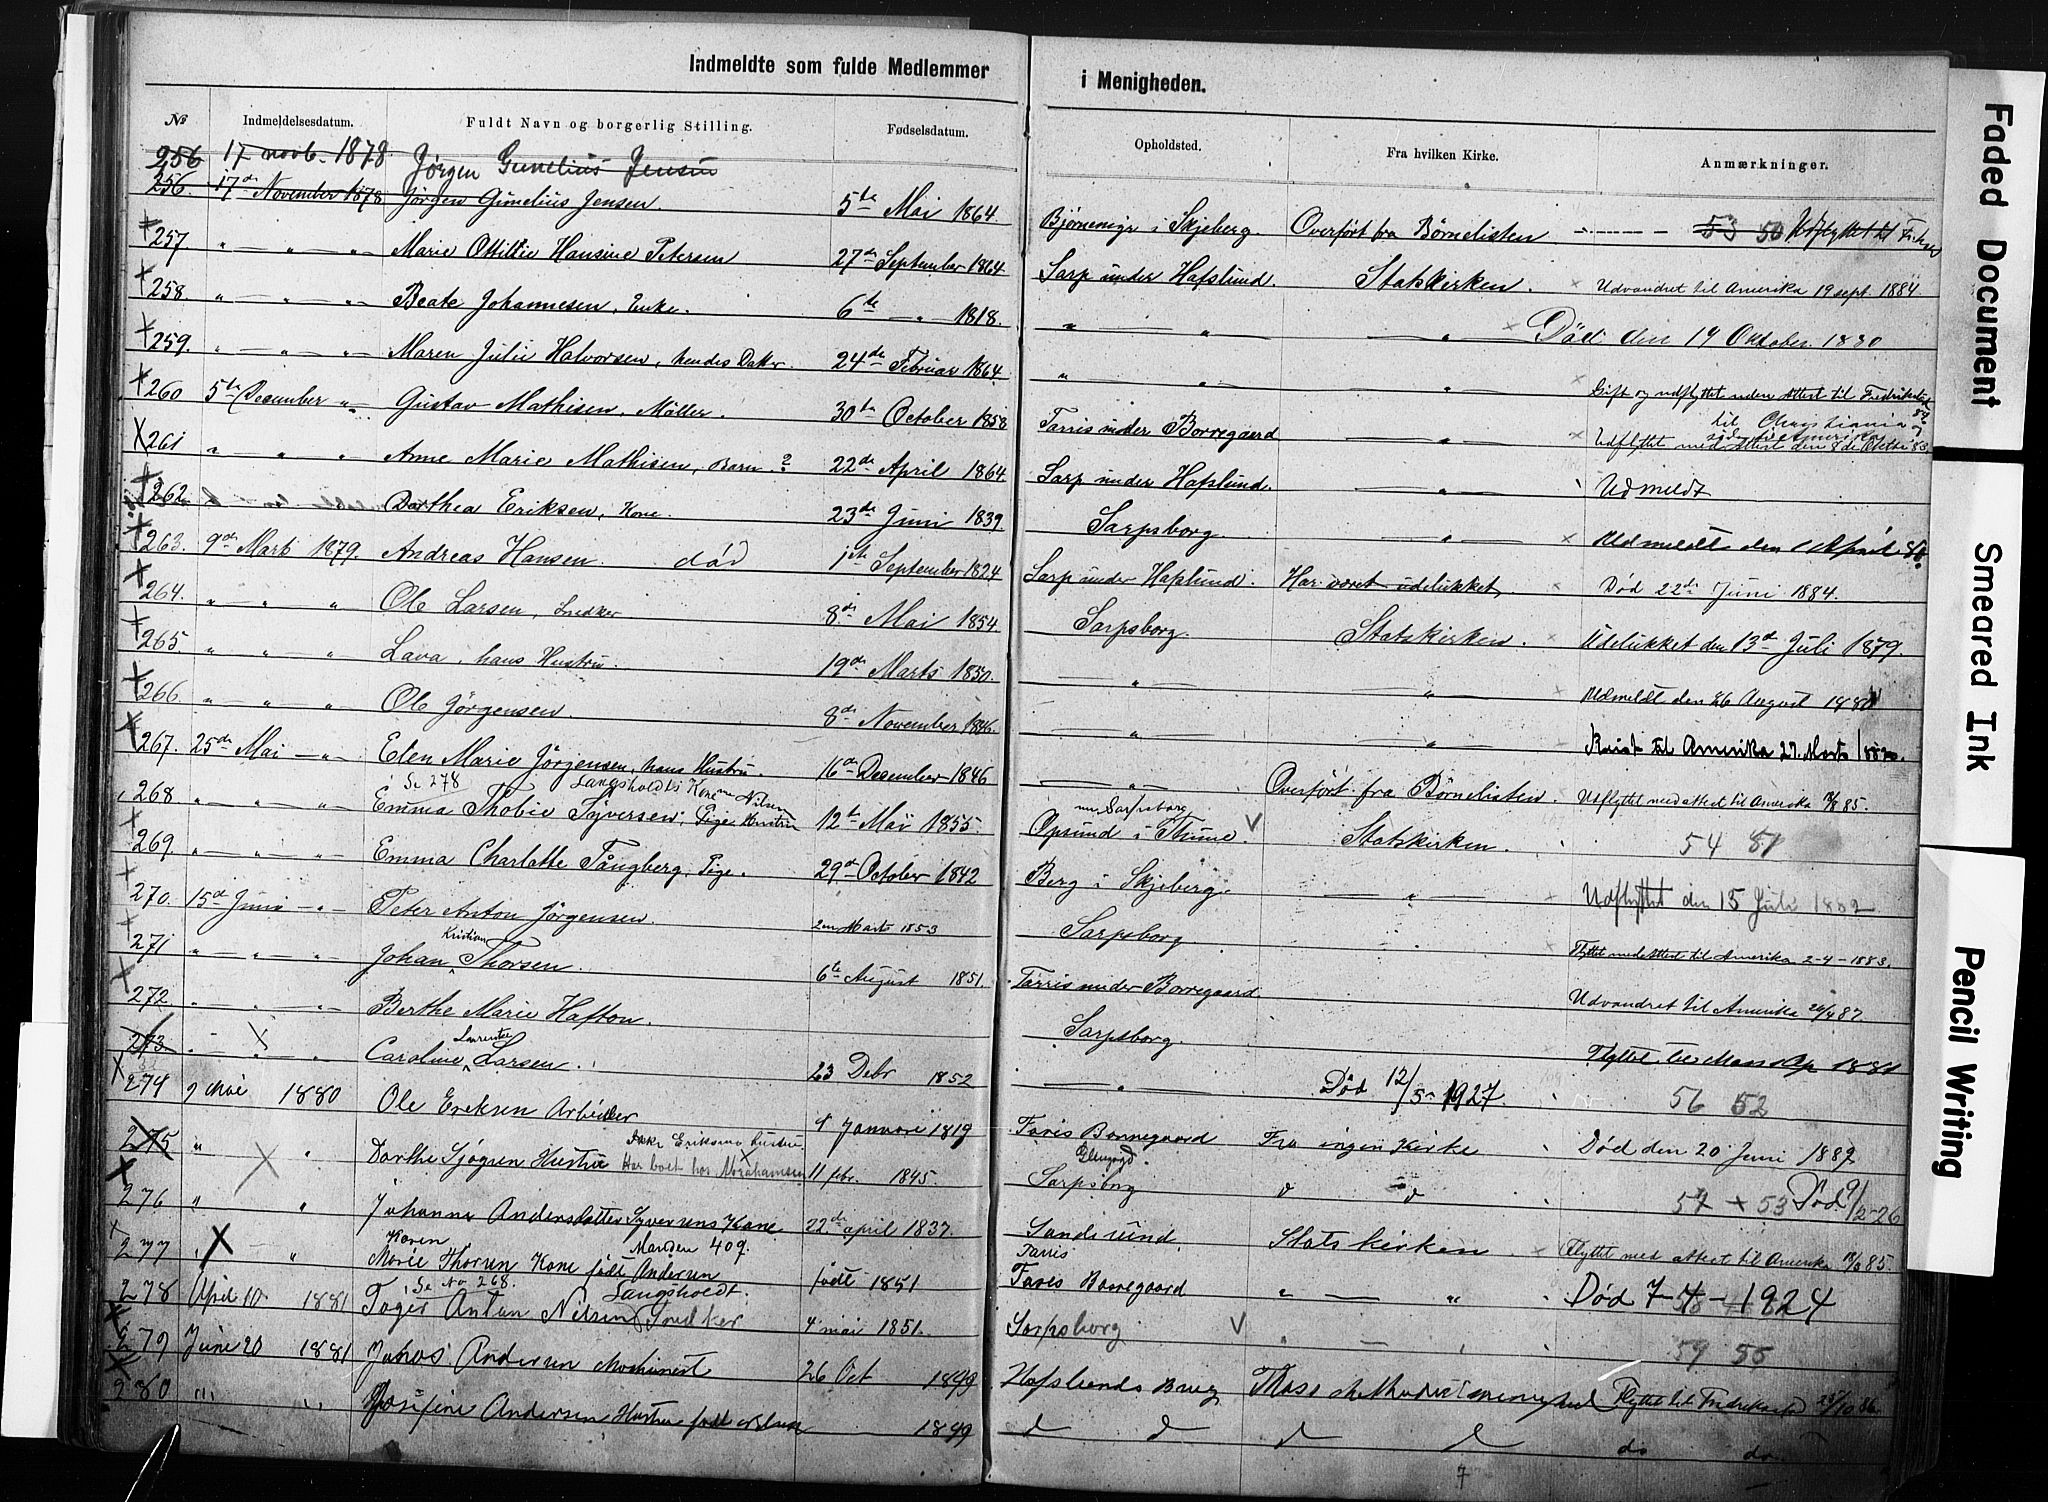 Indmeldte som fulde Medlemmer i Menigheden.
№ Indmeldelsesdatum. Fuldt Navn og borgerlig Stilling. Fødselsdatum. Opholdsted. Fra hvilken Kirke. Anmærkninger.
256 17 novb. 1878. Jørgen Gunelius Jensen
256. 17de November 1878 Jørgen Gunelius Jensen. 5te Mai 1864. i Skjeberg. Overført fra Børnelisten 53 50 Udflyttet til
257. " — " — " Marie Ottilie Hansine Petersen 27de September 1864 Sarp under Hafslund. Statskirken. × Udvandret til Amerika 19 sept. 1884.
258. " — " — " Beate Johannesen, Enke. 6te — " — 1818. " — " — " — × Død den 14 Oktober 1880
259. " — " — " Maren Julie Halvorsen, hendes Datter. 24de Februar 1864. " — " — " — × Gift og udflyttet uden Attest til Fredrikstad
260 5te December " Gustav Mathisen, Møller. 30te October 1858 Tarris under Borregaard — " — × Udflyttet med Attest den 8de Oktbr 83. til Christiania
261 " " " Anne Marie Mathisen, Barn. ? 22de April 1864. Sarp under Hafslund. — " — Udmeldt
262 Dorthea Eriksen, Kone. 23de Juni 1839. Sarpsborg — " — × Udmeldt den 1 April
263. 9de Marts 1879. Andreas Hansen død 1ste September 1824 Sarp under Hafslund. Har været udelukket, Død 22de Juni 1884.
264. " " " Ole Larsen, Snedker 8de Mai 1854 Sarpsborg. Statskirken. × Udelukket den 13de Juli 1879.
265. " " " Lava, hans Hustru. 19de Marts 1850. — " — — " — × Udmeldt den 26 August 1880
266. " " " Ole Jørgensen. 8de November 1846. — " — — " — Reist til Amerika 27. Marts
267. 25de Mai — " — Elen Marie Jørgensen, hans Hustru. 16de December 1846 — " — Overført fra Børnelisten. Udflyttet med attest til Amerika 85.
Se 278 Langsholdts Kone Nilsen
268 " — " — " Emma Thobie Syversen, Pige 12te Mai 1855. Opsund i Thune. V Statskirken. 54 51
269. " — " — " Emma Charlotte Tångberg, Pige. 29de October 1842 Berg i Skjeberg. — " — × Udflyttet den 15 Juli 1882
270. 15de Juni — " — Peter Anton Jørgensen. 2en Marts 1853 Sarpsborg. Flyttet med Attest til Amerika 2-4-1883.
271 " " " Johan Kristian Thorsen. 6te August 1851. Tarris under Borregaard Udvandret til Amerika 87
272 " " " Berthe Marie Hafton. Sarpsborg. Flyttet
273. " " Caroline Larsen. 23 Debr 1852 — " — Død 12/5 1927. 56 52
274 9 Mai 1880 Ole Eriksen Arbeider 9 Januari 1819 Borregaard Fra ingen Kirke Død den 20 Juni 1887
275 " " Dorthe Sjøgren Hustru Ikke Eriksens hustru Har boet hos Abrahamsen 11 febr. 1845. Sarpsborg d d 53 Død 9/2-26
276 " " Johanne Andersdatter Syversens Kone 22de april 1837. Sandsund. Statskirken × Flyttet med attest til Amerika 85.
277 " " Karen Marie Thorsen Kone født Andersen Manden 409. født 1851 Tarris Borregaard " — " Død 7-4-1924
278 April 10 1881 Se No 268 Toger Anton Nilsen Snedker Langsholdt. 4 mai 1851. Sarpsborg V " — " 59 55
279 June 20 1881 Johos Andersen Maskinest 26 Oct 1849 Hafslunds Brug Moss Methodist Flyttet til Fredrikstad 86.
280 " " Josefine Andersen Hustru født 1849 d d d d do do.
7
Faded Document
Smeared Ink
Pencil Writing